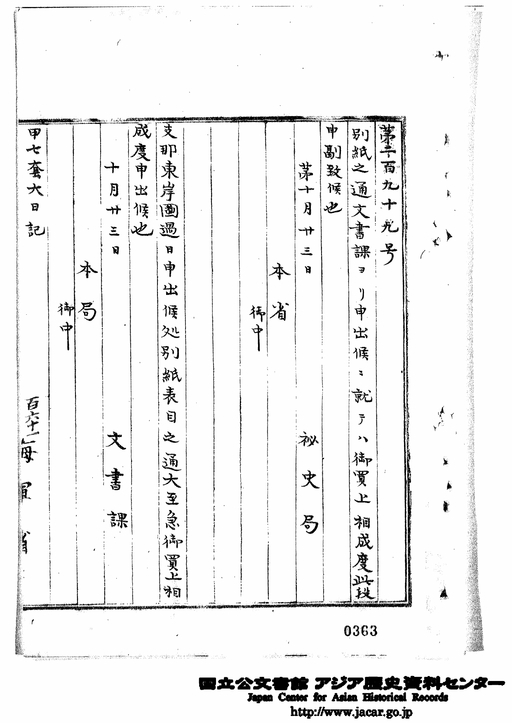 第二百九十九号
別紙之通文書課ヨリ申出候ニ就テハ御買上相成度此段
申副致候也
第十月廿三日
秘史局
本省
御中
支那東岸圖過日申出候処別紙表目之通大至急御買上相
成度申出候也
十月廿三日
文書課
本局
御中
甲七套大日記
百六十一
海軍省
0363
国立公文書館 アジア歴史資料センター
Japan Center for Asian Historical Records
http://www.jacar.go.jp